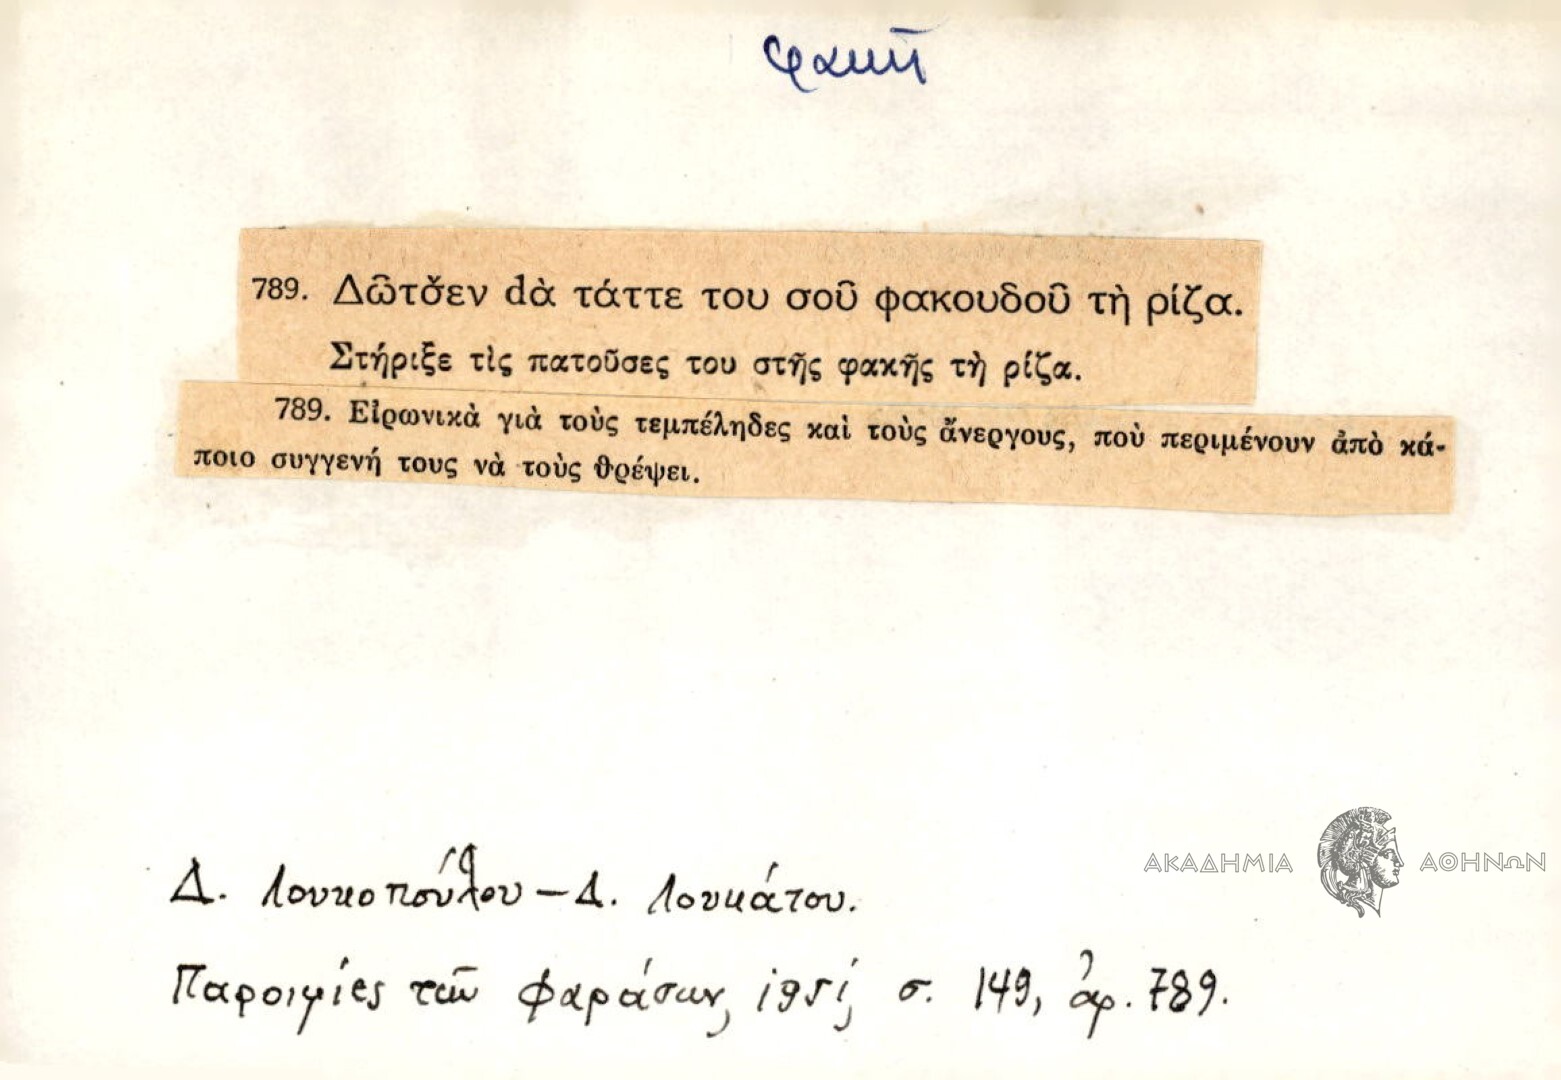 φακῆ
789. Δῶτσ̌εν dὰ τάττε του σοῦ φακουδοῦ τὴ ρίζα.
Στήριξε τὶς πατοῦσες του στῆς φακῆς τὴ ρίζα.
789. Εἰρωνικὰ γιὰ τοὺς τεμπέληδες καὶ τοὺς ἄνεργους, ποὺ περιμένουν ἀπὸ κά-
ποιο συγγενή τους νὰ τοὺς θρέψει.
ΑΚΑΔΗΜΙΑ ΑΘΗΝΩΝ
Δ. Λουκοπούλου – Δ. Λουκάτου.
Παροιμίες τῶν Φαράσων, 1951, σ. 149, ἀρ. 789.